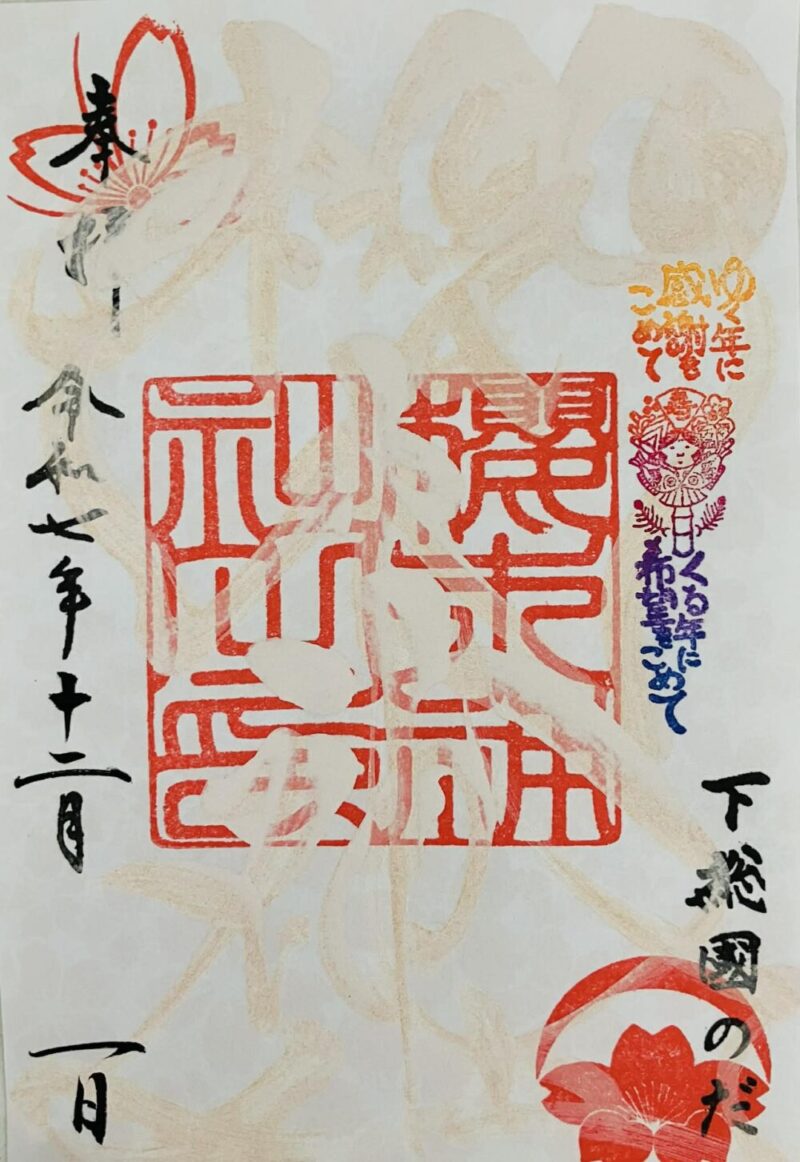 下総國のだ
ゆく年に
感謝を
こめて
くる年に
希望をこめて
櫻木神
社之印
奉拝 令和七年十二月 一日